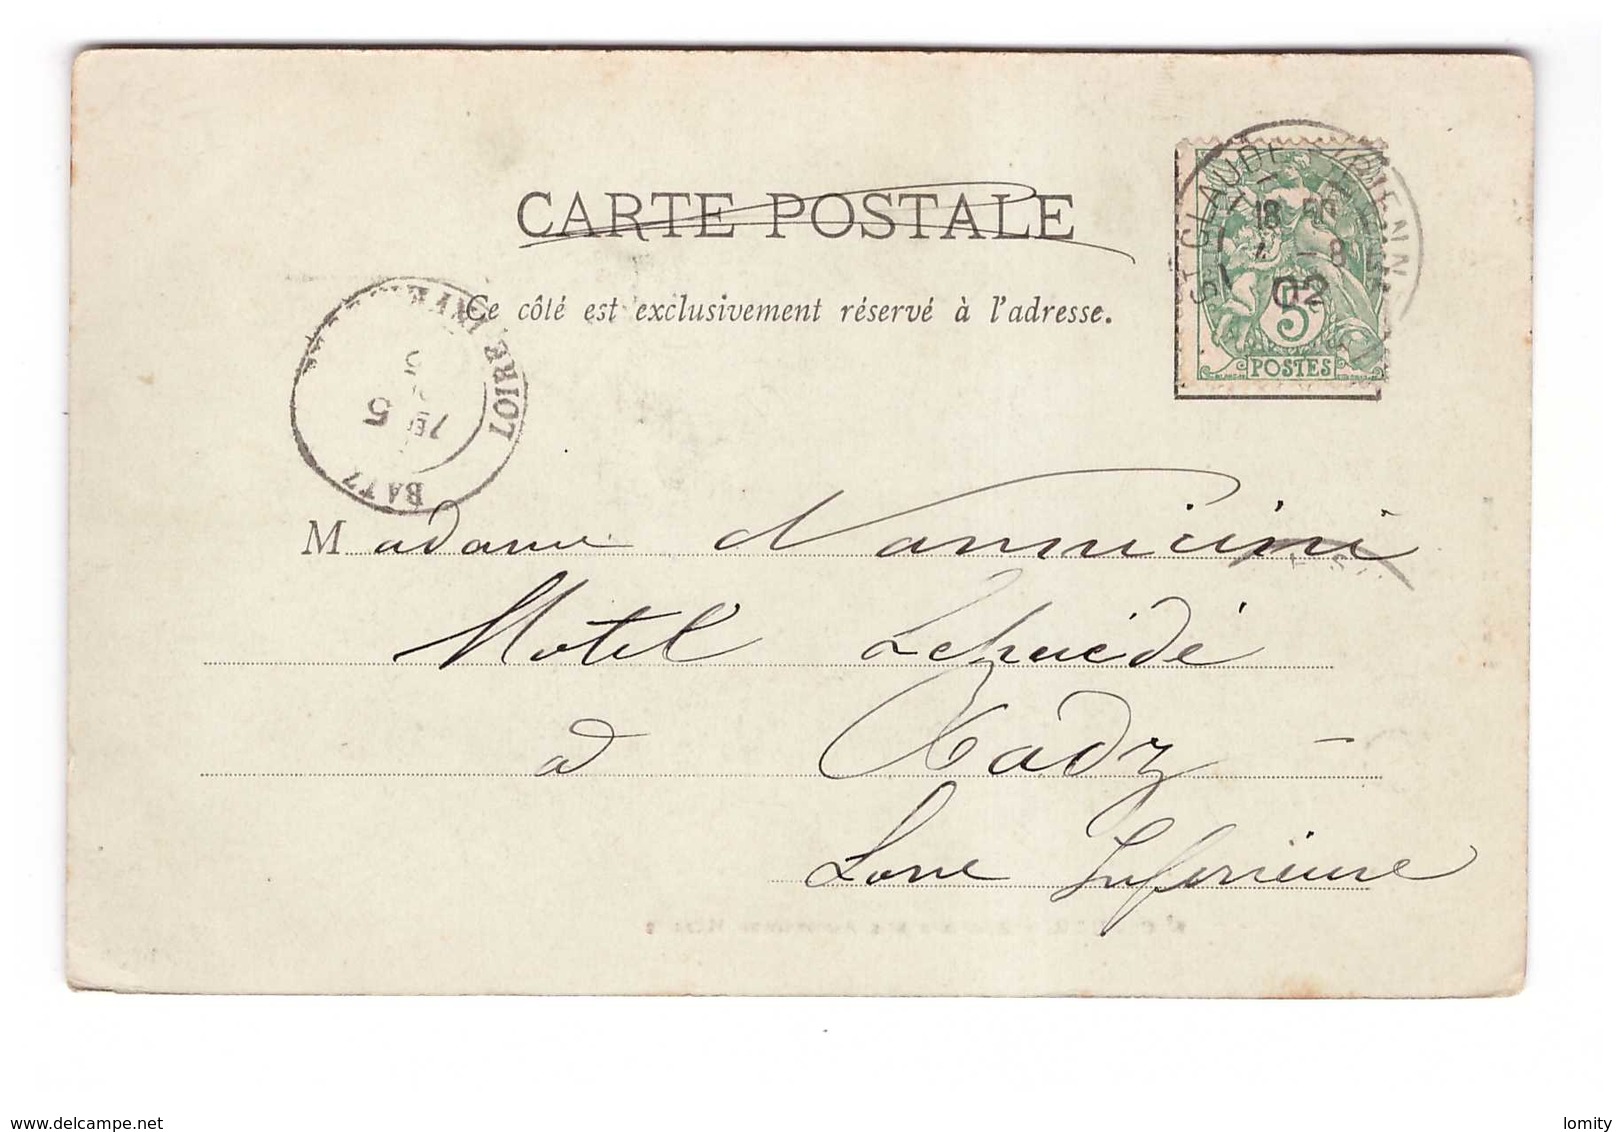 CARTE POSTALE
Ce côté est exclusivement réservé à l'adresse.
ST CLAUDE VIENN
18
4 8
02
5
POSTES
LOIRE INFERIEURE
BATZ
5
Madame Nannicini
Hotel Lehuédé
à Badz –
Loire Inférieure
www.delcampe.net
lomity